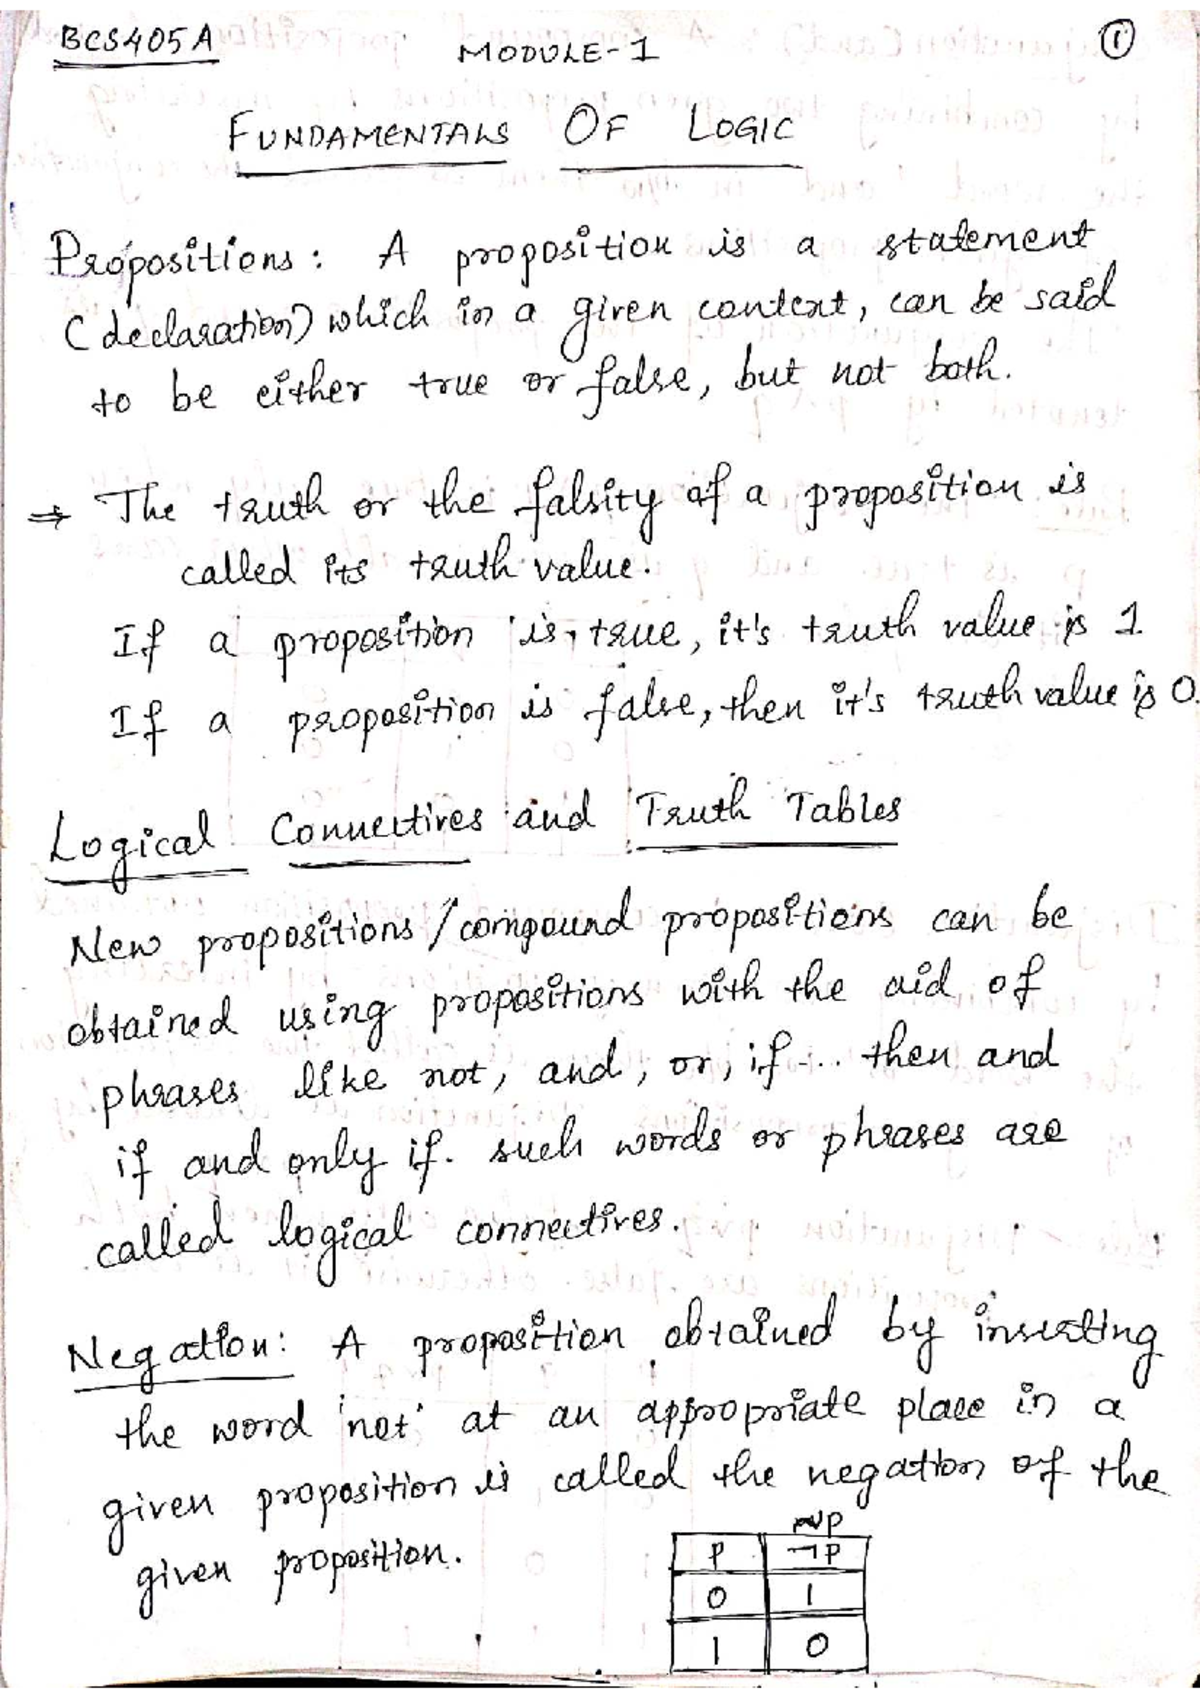 BCS405A
MODULE-1
①
FUNDAMENTALS OF LOGIC
Propositions: A proposition is a statement
(declaration) which in a given context, can be said
to be either true or false, but not both.
⇒ The truth or the falsity of a proposition is
called its truth value.
If a proposition is true, it's truth value is 1
If a proposition is false, then it's truth value is 0.
Logical Connectives and Truth Tables
New propositions/compound propositions can be
obtained using propositions with the aid of
phrases like not, and, or, if... then and
if and only if. such words or phrases are
called logical connectives.
Negation: A proposition obtained by inserting
the word 'not' at an appropriate place in a
given proposition is called the negation of the
given proposition.
~p
p ¬p
0 1
1 0